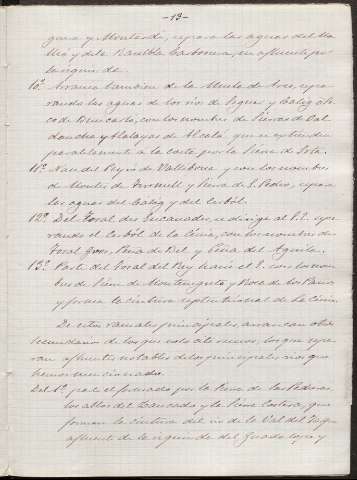 -13-
y Montardi, separa las aguas del
y de la Rambla Carbonera, su afluente por
la izquierda.
10º Arranca tambien de la Muela de Ares, sepa-
rando las aguas de los rios de Segura y Calig ó Se-
co de Benicarló, con los nombres de Sierras de Val
dancha y Atalayas de Alcalá, que se extienden
paralelamente á la costa por la Sierra de Irta.
11º Nace del Peyro de Vallibona y con los nombres
de Montes de Turmell y Sierra de S. Pedro, separa
las aguas del Calig y del Cerbol.
12º Del Tosal des Encanades se dirige al S.E. sepa-
rando el Cerbol de la Cenia, con los nombres de
Tosal gros, Peña de Bel y Peña del Aguila.
13º Parte del Tosal del Rey hacia el E. con los nom-
bres de Sierra de Montenegrelo y Bosc de los Panos
y forma la cintura septentrional de la Cenia.
De estos ramales principales arrancan otros
secundarios de los que solo citaremos, los que sepa-
ran afluentes notables de los principales rios que
hemos mencionado.
Del 1º, por el formado por la Sierra de las Pedrizas
los altos del Zancado y la Sierra Costera, que
forman la cintura del rio de la Val del
afluente de la izquierda del Guadalope y